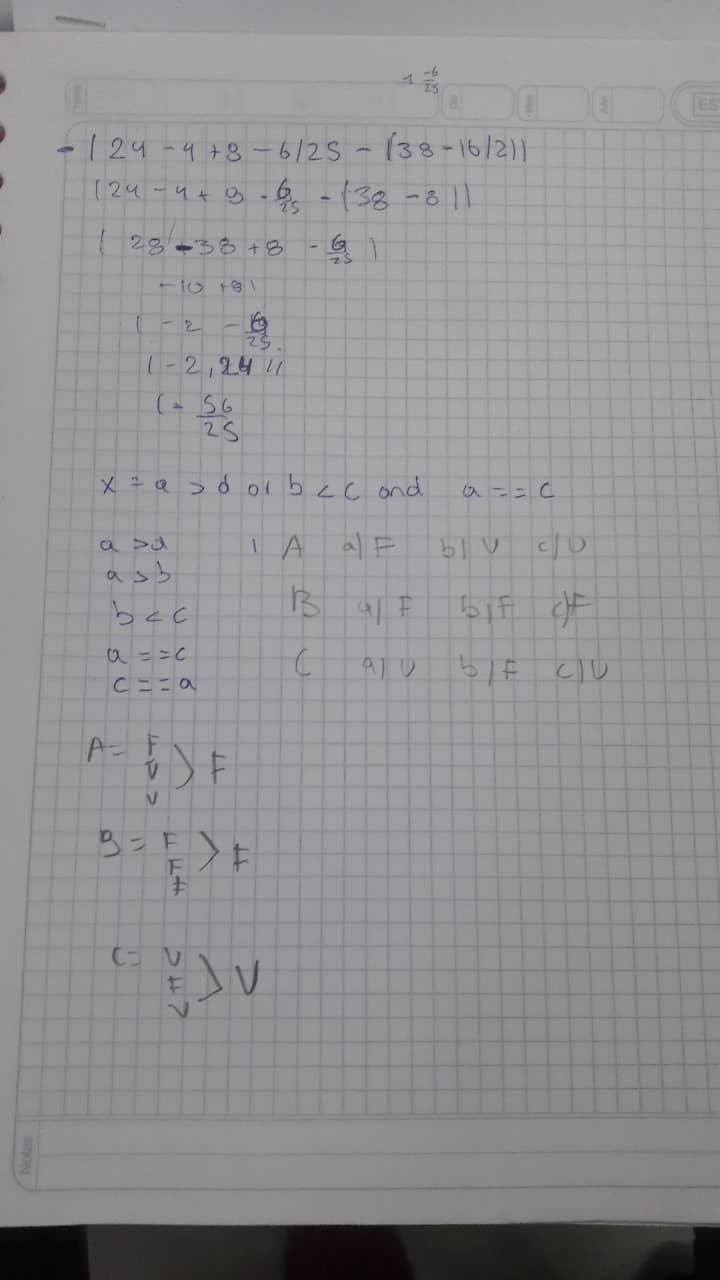 -6/25
-(24-4+8-6/25-(38-16/2))
(24-4+8-6/25-(38-8))
(28-38+8-6/25)
-10+8)
(-2-6/25
(-2,24))
(-56/25
x=a>d or b<c and a==c
a>d 1 A a)F b)V c)V
a>b
b<c B a)F b)F c)F
a==c C a)V b)F c)V
c==a
A= F
V > F
V
B= F
F > F
F
C= V
F > V
V
Notes